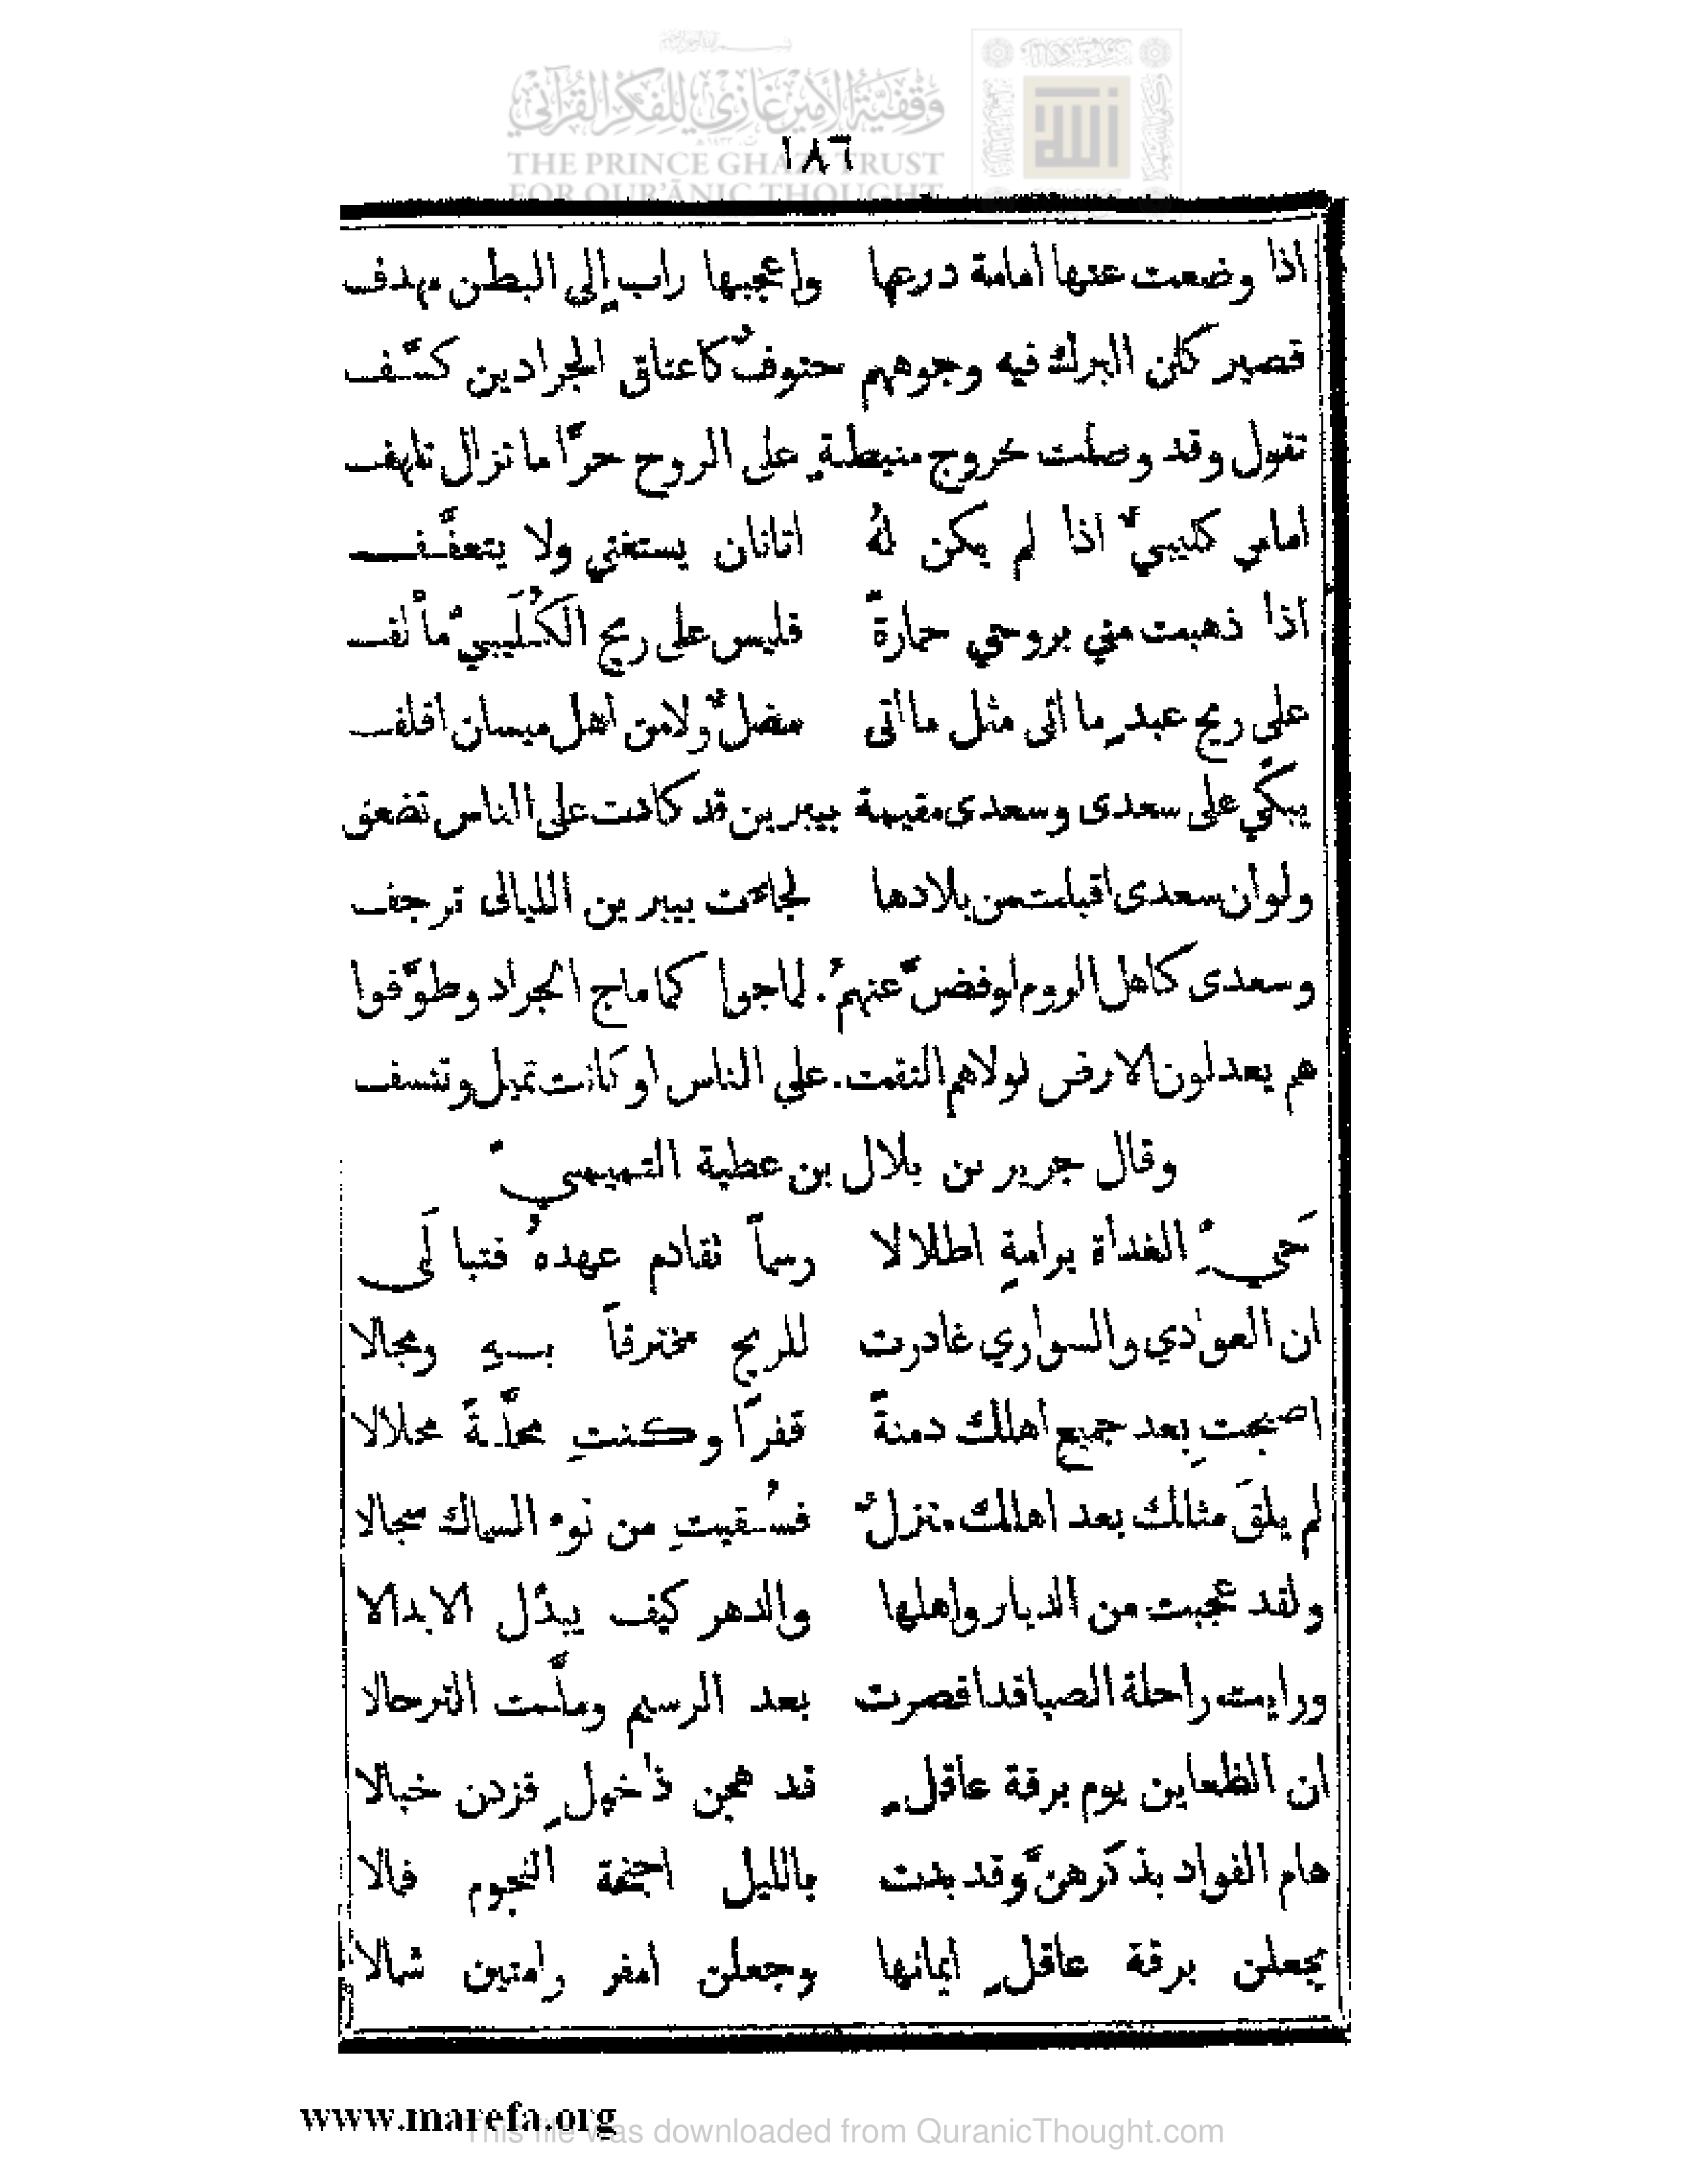 وقفية الأمير غازي للفكر القرآني
THE PRINCE GHAZI TRUST
FOR QUR'ĀNIC THOUGHT
١٨٦
اذا وضعت عنها امامة درعها واعجبها راب إلى البطن مهدف
قصير كلن البرك فيه وجوههم حتوفٌ كاعناق الجرادين كتّف
تقول وقد وصلت خروج منبطةٍ على الروح حرّا ما تزال تلهف
اماس كليبيّ اذا لم يكن لهُ اتانان يستغني ولا يتعفّف
اذا ذهبت مني بروحي حمارةً فليس على ريح الكُلَيبيّ مأنف
على ريح عبدٍ ما اتى مثل ما اتى مصلٌّ ولا من اهل ميسان اقلف
يبكّي على سعدى وسعدى مقيمة بيبرين قد كادت على الناس تضعف
ولوان سعدى اقبلت من بلادها لجاءت بيبرين الليالى ترجف
وسعدى كاهل الروم لوفضّ عنهمُ. لماجوا كما ماج الجراد وطوّفوا
هم يعدلون الارض لولاهم التقت. على الناس او كانت تميل وتنسف
وقال جرير بن بلال بن عطية التميميّ
حَيِّ الغداة برامةٍ اطلالا رسماً تقادم عهدهُ فتبالَى
ان العوادي والسواري غادرت للريح مخترقاً بـــهِ ومجالا
اصبحتِ بعد جميع اهلك دمنةً قفرًا وكنتِ محلّةً محلالا
لم يلقَ مثلك بعد اهلك منزلٌ فسُقيتِ من نوء السماك سجالا
ولقد عجبت من الديار واهلها والدهر كيف يبدّل الابدالا
ورايت راحلة الصبا قد اقصرت بعد الرسيم وملّت الترحالا
ان الظعاين يوم برقة عاقلٍ قد هجن ذا خبلٍ فزدن خبالا
هام الفواد بذكرهنّ وقد بدت بالليل اجنحة النجوم فمالا
يجعلن برقة عاقلٍ ايمانها وجعلن امغر رامتين شمالا
www.marefa.org
This file was downloaded from QuranicThought.com